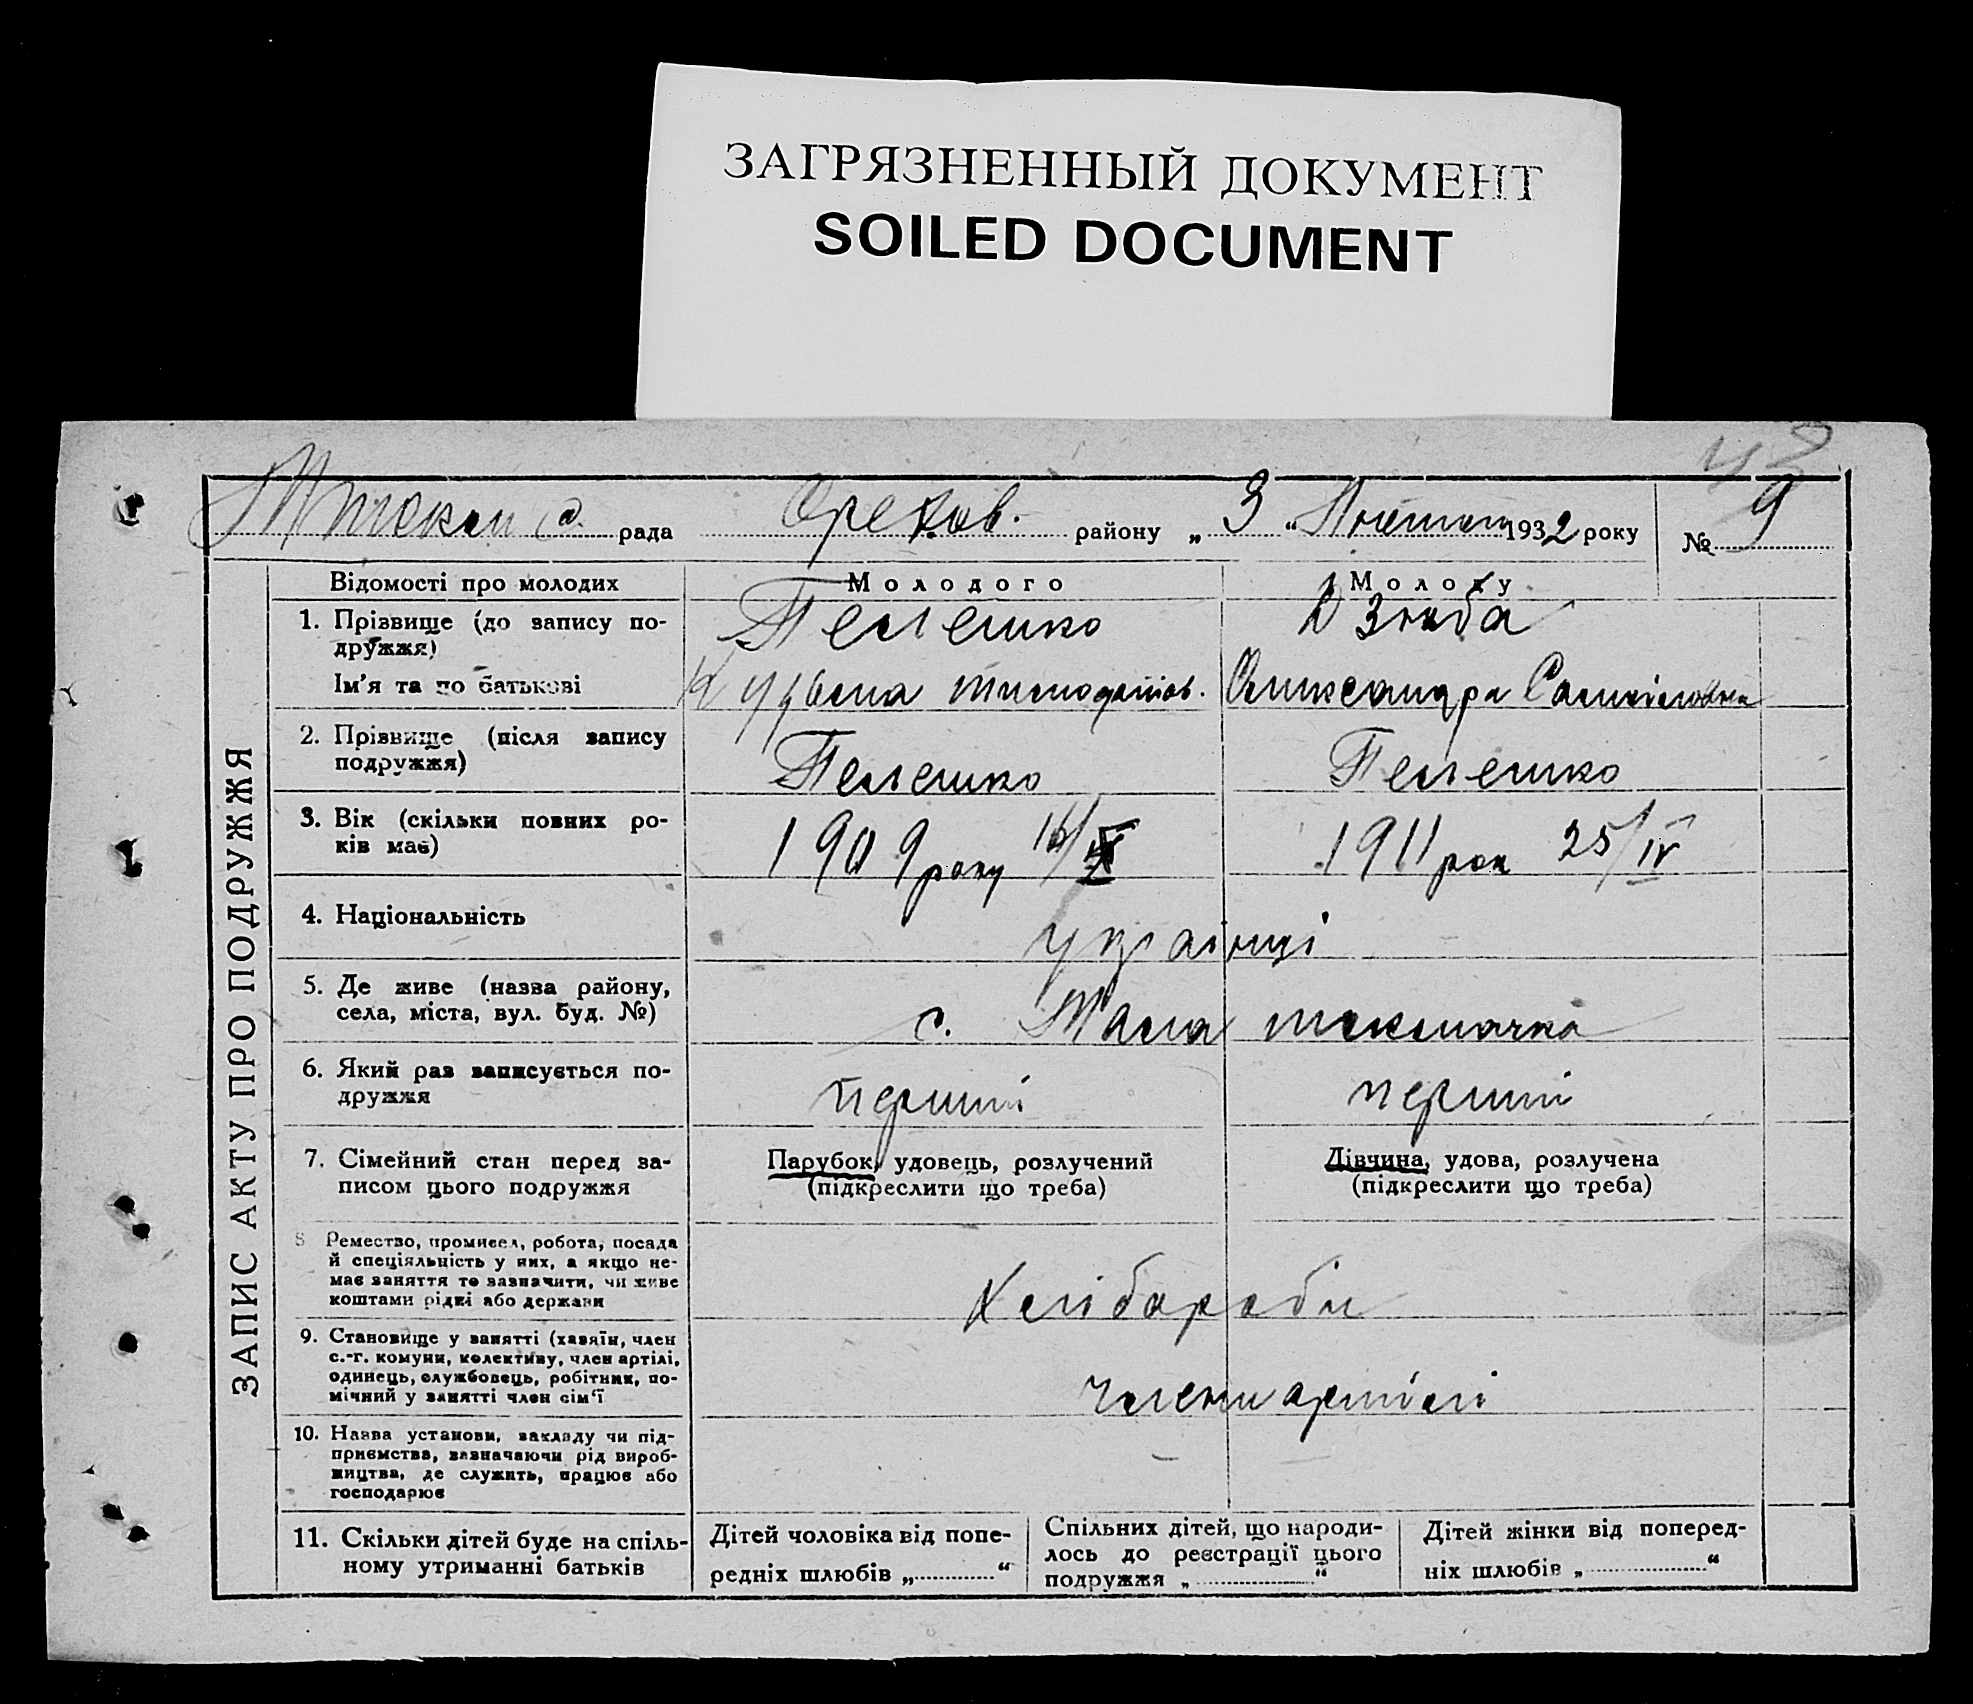 ЗАГРЯЗНЕННЫЙ ДОКУМЕНТ
SOILED DOCUMENT
с. рада Орехов. району „ 3 “ 1932 року № 9
ЗАПИС АКТУ ПРО ПОДРУЖЖЯ
Відомості про молодих Молодого Молоду
1. Прізвище (до запису по-
дружжя) Телешко Дзюба
Ім'я та по батькові Олександра Самійловна
2. Прізвище (після запису
подружжя) Телешко Телешко
3. Вік (скільки повних ро-
ків має) 1909 року 1911 рок 25/IV
4. Національність українці
5. Де живе (назва району,
села, міста, вул. буд. №) с. Мала токмачка
6. Який раз записується по-
дружжя перший перший
7. Сімейний стан перед за-
писом цього подружжя
Парубок, удовець, розлучений
(підкреслити що треба)
Дівчина, удова, розлучена
(підкреслити що треба)
8 Ремество, промисел, робота, посада
й спеціяльність у них, а якщо не-
має заняття то зазначити, чи живе
коштами рідні або держави
Хліборобы
9. Становище у занятті (хазяїн, член
с.-г. комуни, колективу, член артілі,
одинець, службовець, робітник, по-
мічний у занятті член сім'ї
члени артілі
10. Назва установи, закладу чи під-
приємства, зазначаючи рід вироб-
ництва, де служить, працює або
господарює
— —
11. Скільки дітей буде на спіль-
ному утриманні батьків
Дітей чоловіка від попе-
редніх шлюбів „ “
Спільних дітей, що народи-
лось до реєстрації цього
подружжя „ “
Дітей жінки від поперед-
ніх шлюбів „ “